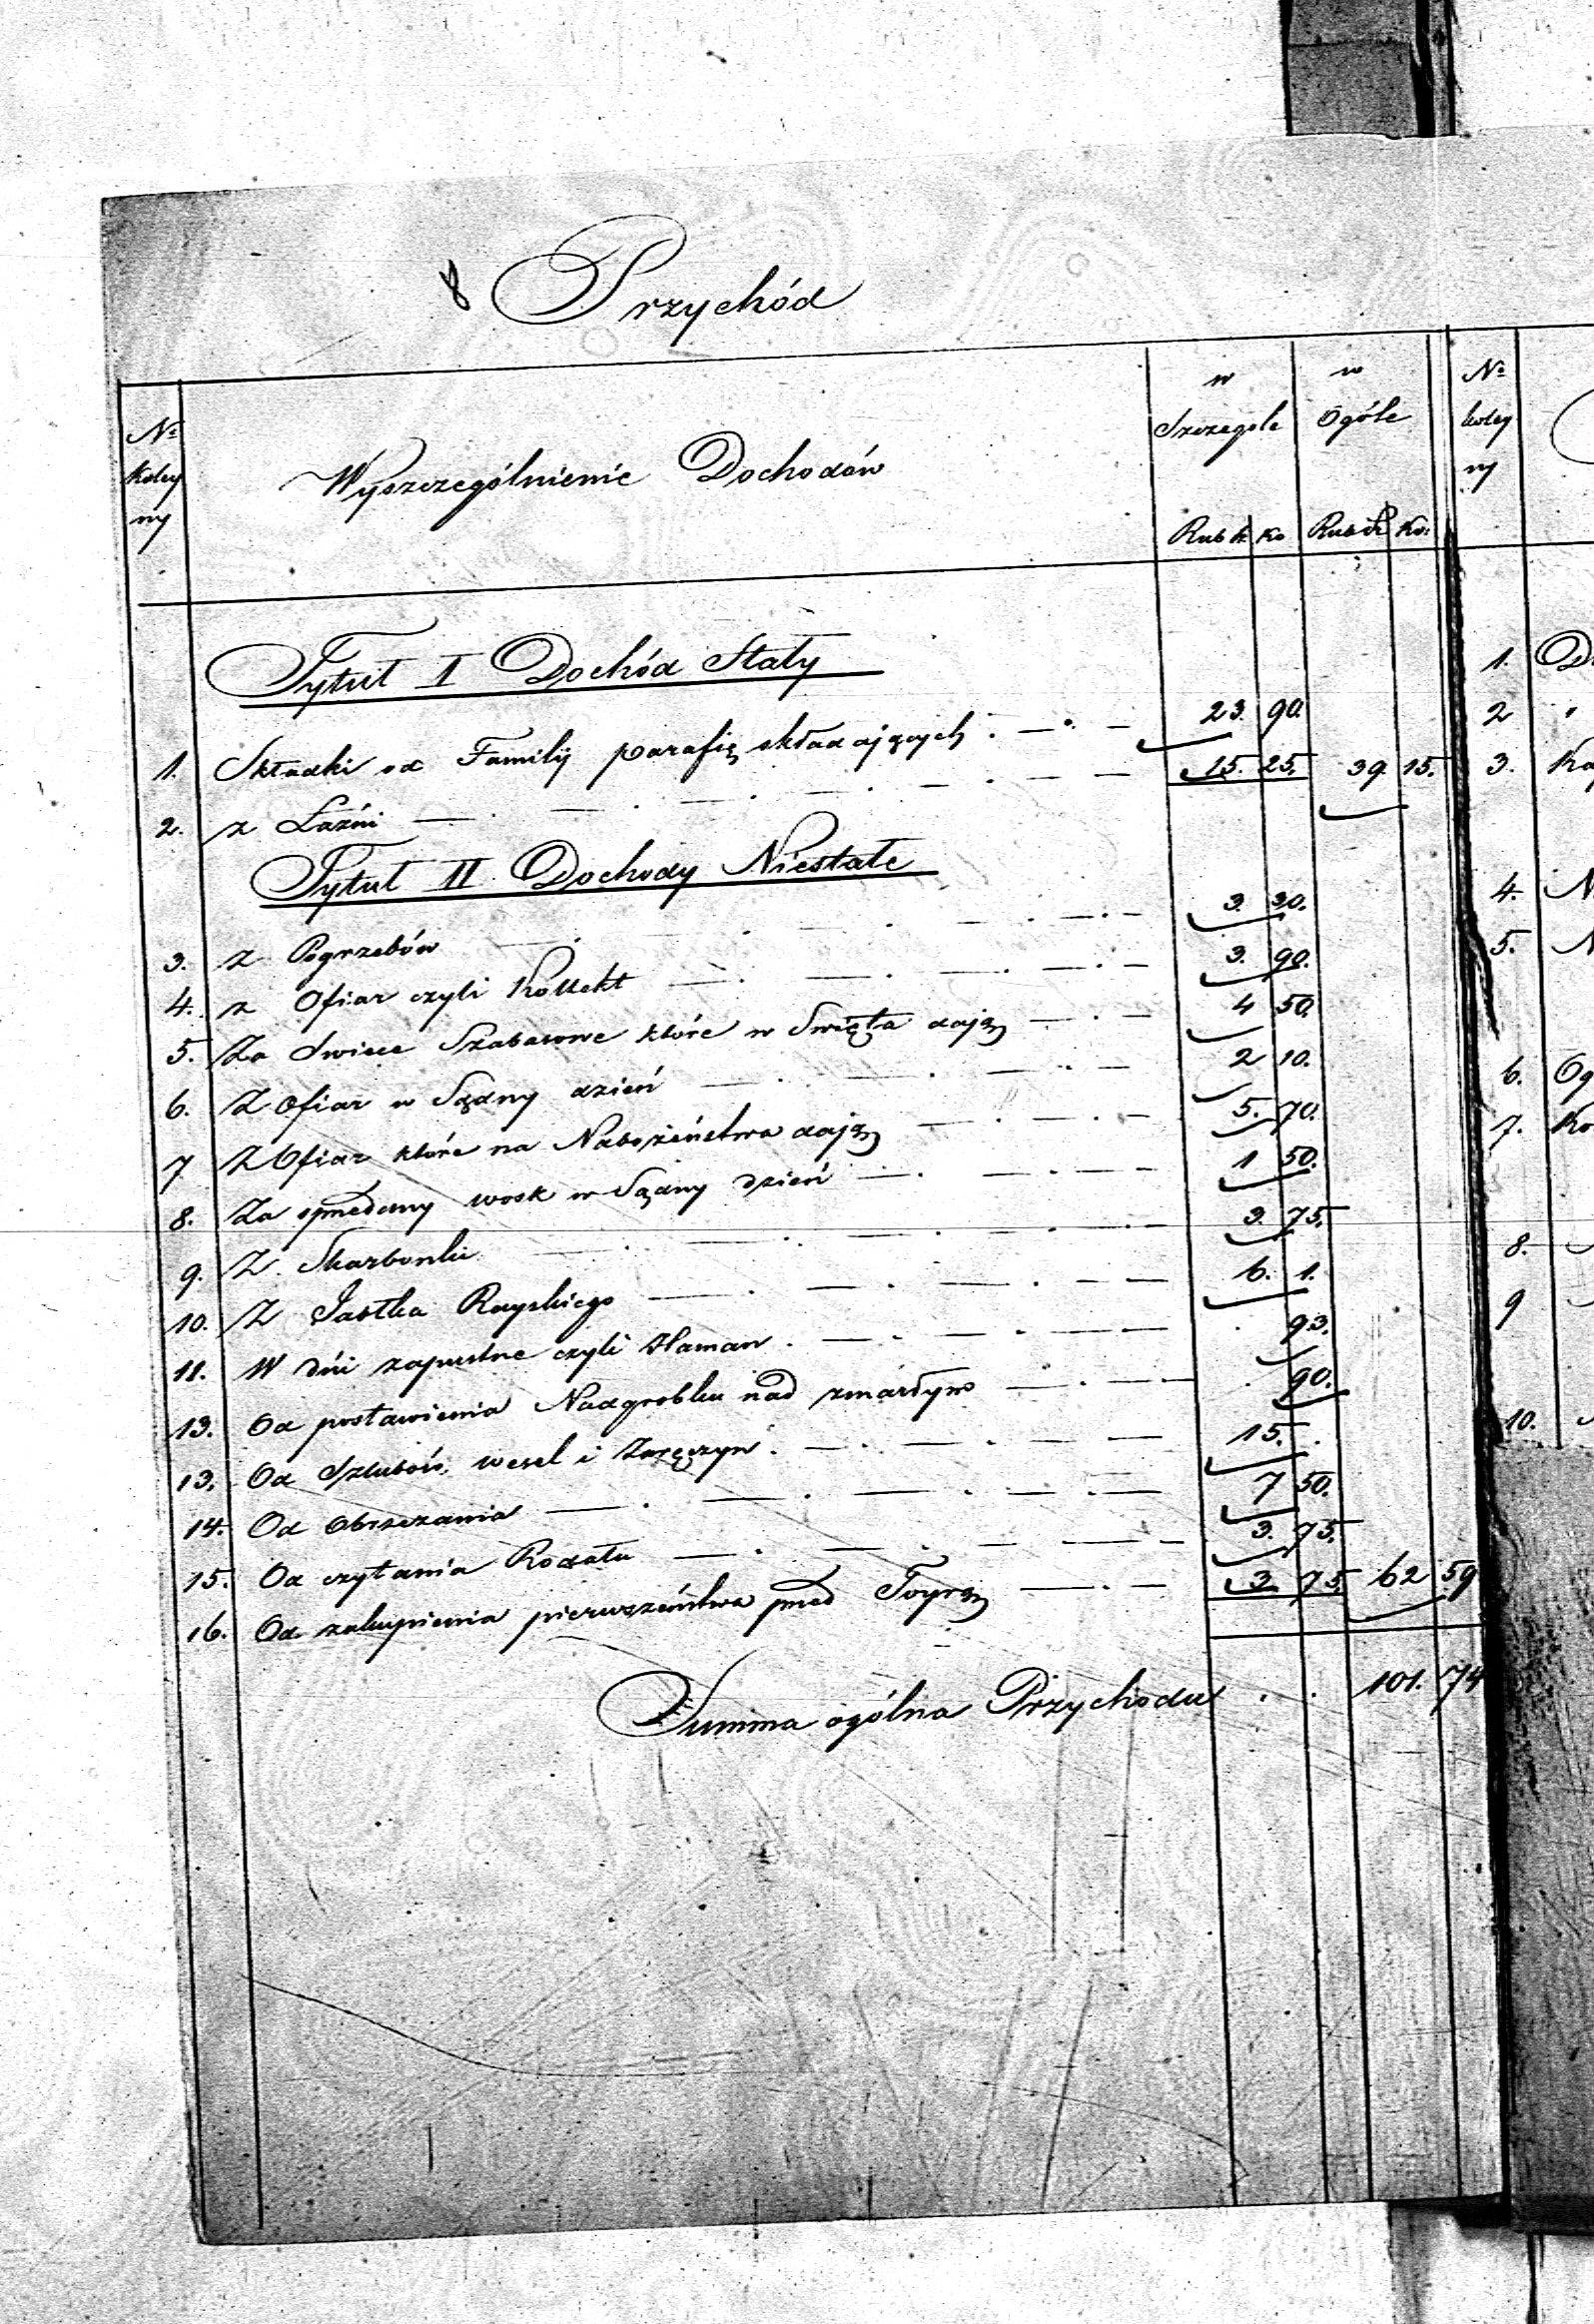 8 Przychód
№ koley ny
Wyszczególnienie Dochodów
w Szczególe
w Ogóle
Rub sr. Ko
Rub sr Ko:
Tytuł I Dochód Stały
1. Składki od Familij parafię składających 23. 90.
2. z Łaźni 15. 25. 39. 15.
Tytuł II Dochody Niestałe
3. z Pogrzebów 3. 30.
4. z Ofiar czyli Kollekt 3. 90.
5. Za Swiece Szabasowe które w Swięta dają 4 50.
6. Z Ofiar w Sądny dzień 2 10.
7 Z Ofiar które na Nabożeństwa dają 5. 70.
8. Za sprzedany wosk w Sądny dzień 1 50.
9. Z Skarbonki 3. 75.
10. Z Jabłka Rayskiego 6. 1.
11. W dni zapustne czyli Haman . 93.
13. Od postawienia Nadgrobku nad zmarłym . 90.
13. Od Szlubów, wesel i Zaręczyn 15. .
14. Od Obrzezania 7 50.
15. Od czytania Rodału 3. 75.
16. Od zakupienia pierwszeństwa przed Torą 3. 75. 62 59
Summa ogólna Przychodu . . 101. 74
№ koley ny
1.
2
3.
4.
5.
6.
7.
8.
9
10.